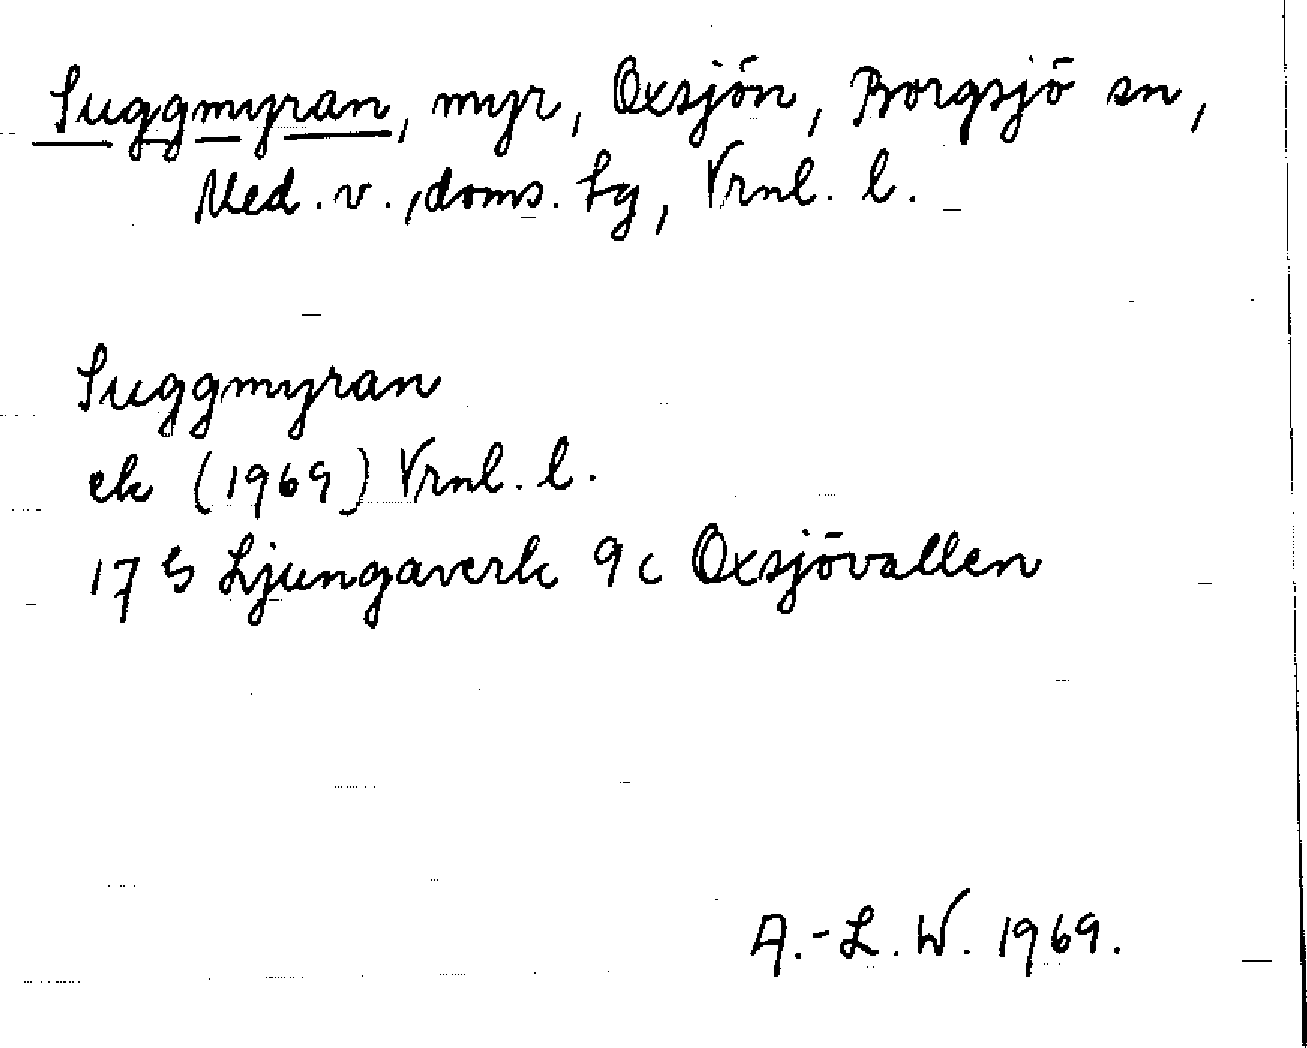 Suggmyran, myr, Oxsjön, Borgsjö sn,
Med. v., doms. hg, Vrnl. l.
Suggmyran
ek (1969) Vrnl. l.
17 G Ljungaverk 9 c Oxsjövallen
A.-L. W. 1969.